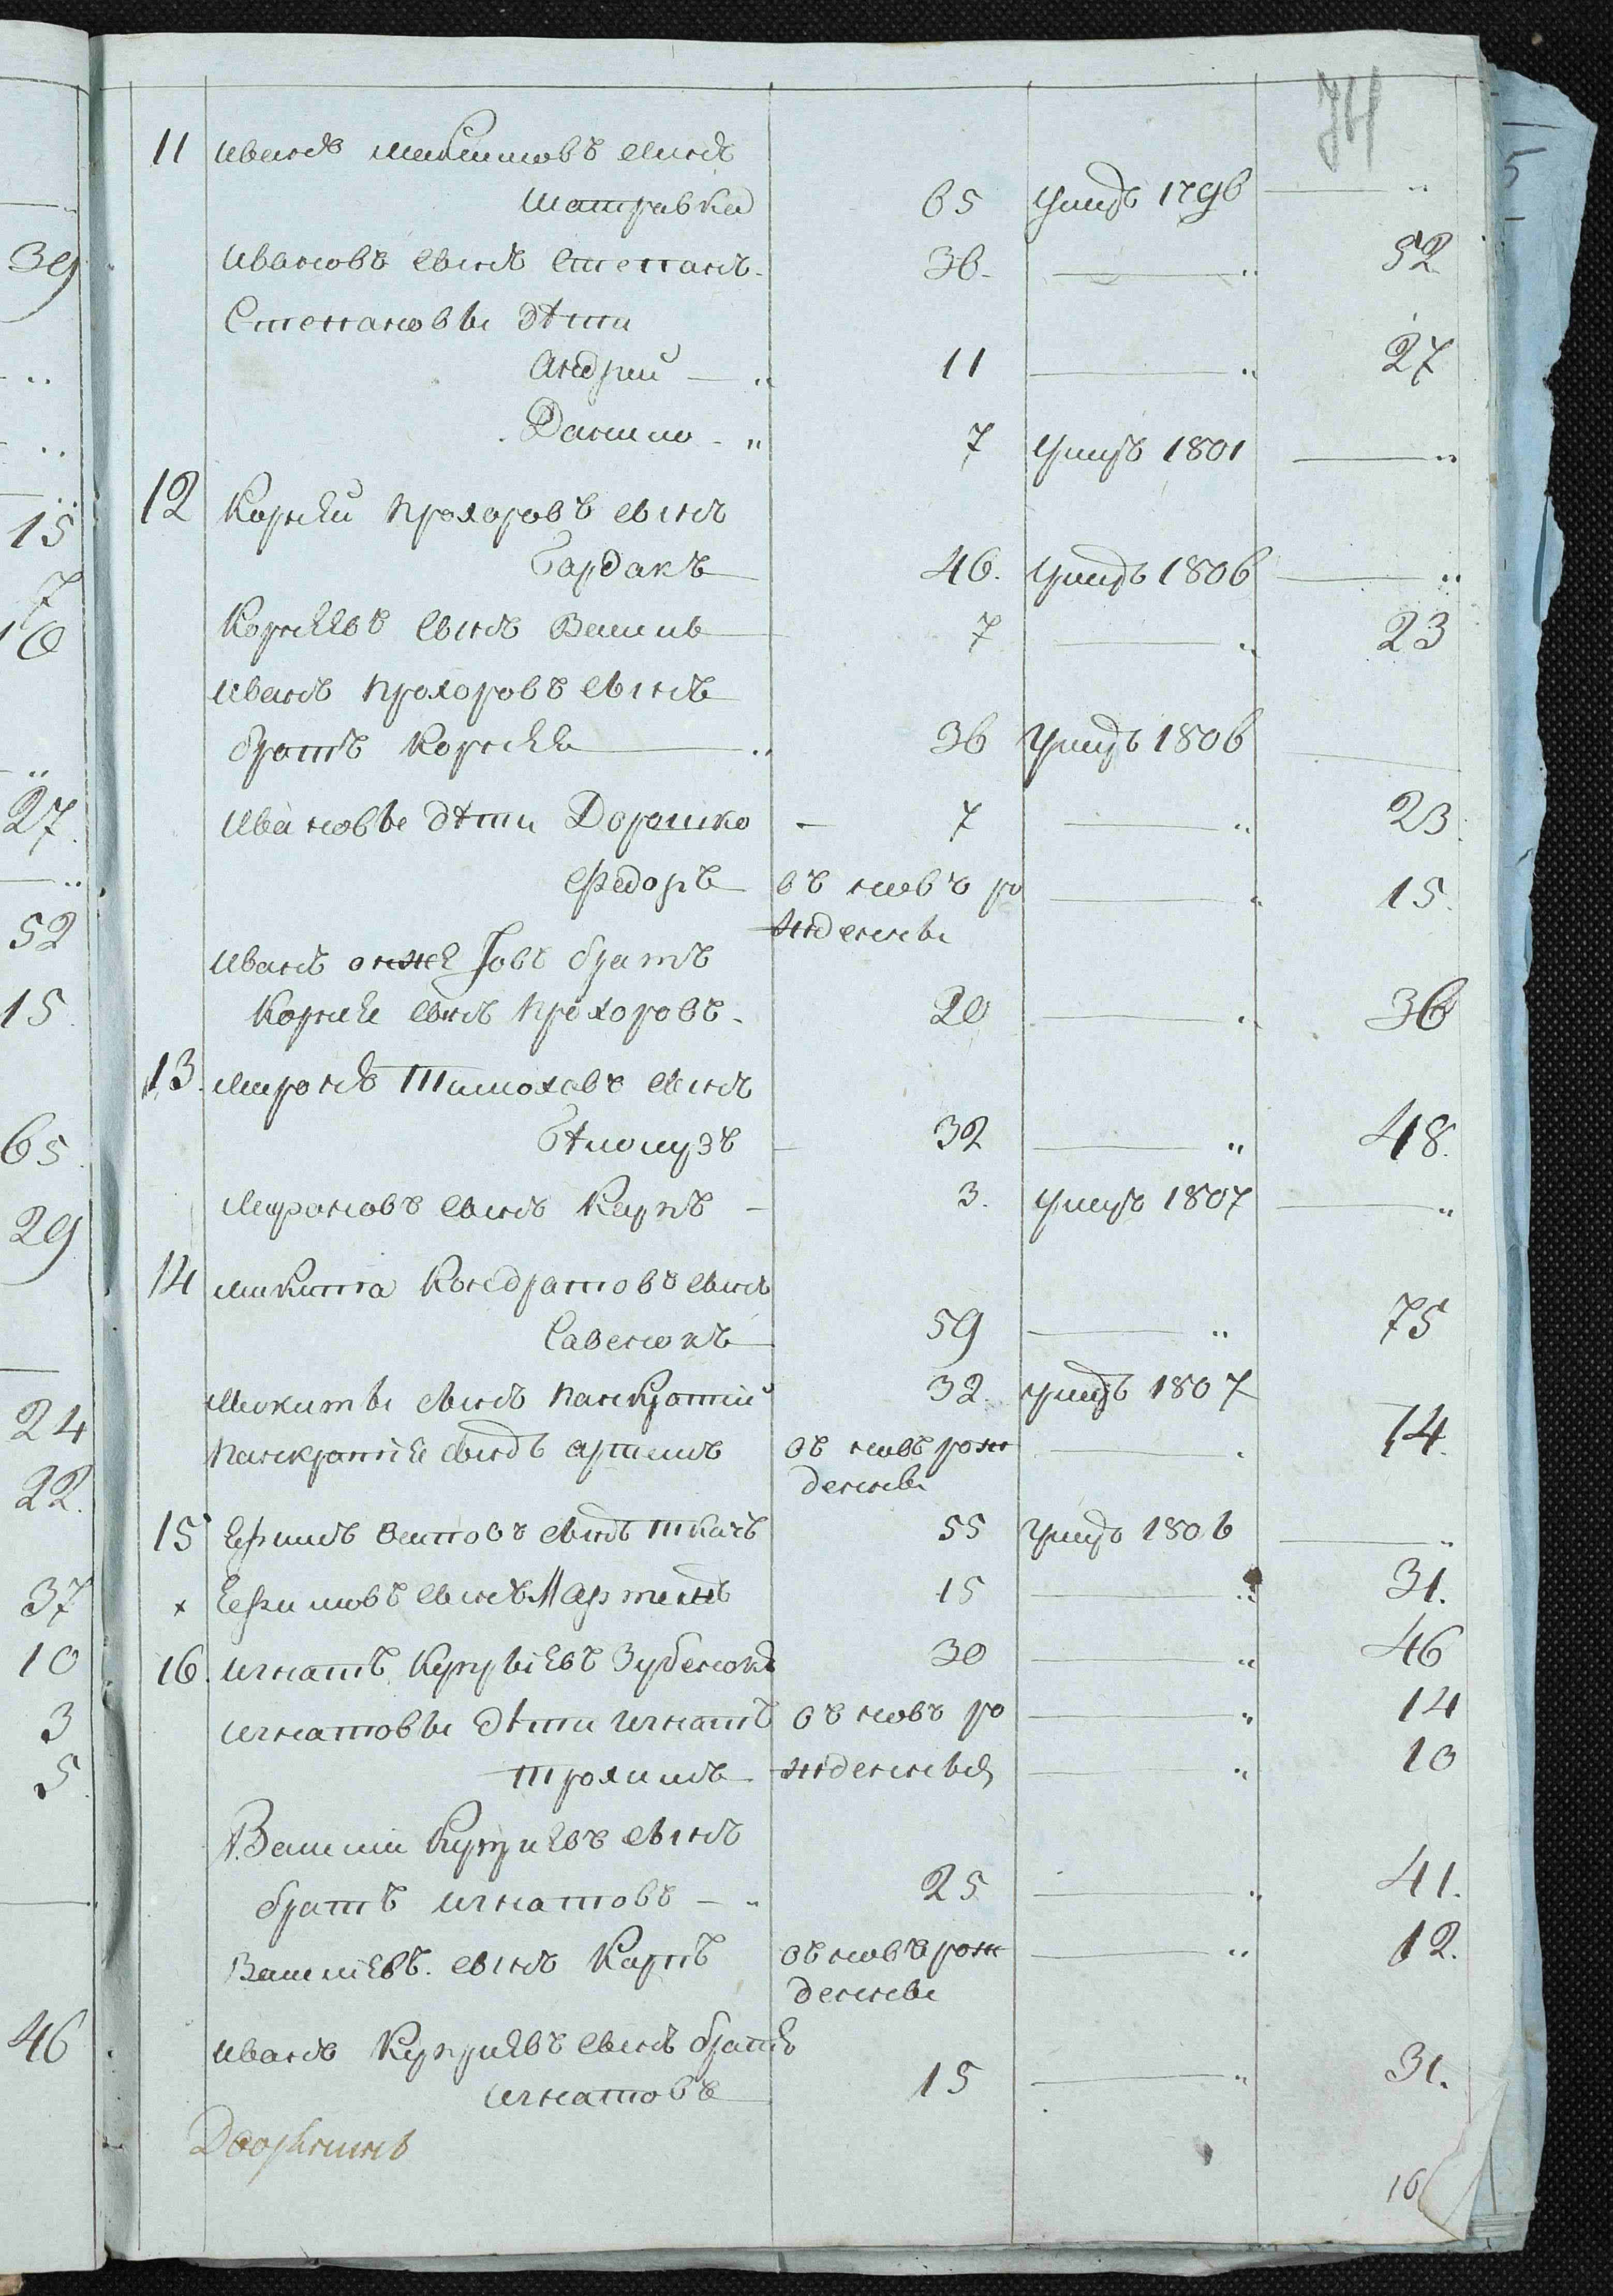 74
11 Иванъ Микитовъ сынъ
Шатравка 65 умеръ 1796 — „
Ивановъ сынъ Степанъ 36. — „ 52
Степановы дѣти
Андрей — „ 11 — „ 27
Данило - „ 7 умеръ 1801 — „
12 Корнѣй Прохоровъ сынъ
Бардакъ 46. умеръ 1806 — „
Корнѣевъ сынъ Василь 7 — „ 23
Иванъ Прохоровъ сынъ
братъ Корнѣя — „ 36 умеръ 1806 —
Ивановы дѣти Дорошко - 7 — „ 23
Федоръ въ новъ ро — „ 15.
жденны
Иванъ онже Іовъ братъ
Корнѣя сынъ Прохоровъ. 20 — „ 36
13. Миронъ Тимоховъ сынъ
Бѣлоузъ 32 — „ 48.
Мироновъ сынъ Карпъ - 3. умеръ 1807 — „
14 Микита Кондратовъ сынъ
Савенокъ 59 — „ 75
Микиты сынъ Панкратій 32. умеръ 1807
Панкратія сынъ Артемъ въ новъ рож — „ 14.
денны
15 Ефимъ сынъ Ткачъ 55 умеръ 1806 — „
х Ефимовъ сынъ Мартинъ 15 — „ 31.
16. Игнатъ Купріевъ Зубенокъ 30 — „ 46
Игнатовы дѣти Игнатъ въ новъ ро — „ 14
Трохимъ жденныя — „ 10
Василий Купріевъ сынъ
братъ Игнатовъ — „ 25 — „ 41.
Василіевъ сынъ Карпъ въ новъ рож — „ 12.
денны
Иванъ Купріевъ сынъ братъ
Игнатовъ 15 — „ 31.
Дворянинъ
16
39
15
7
10
27.
52
15
65.
29
24
22.
37
10
3
5
46